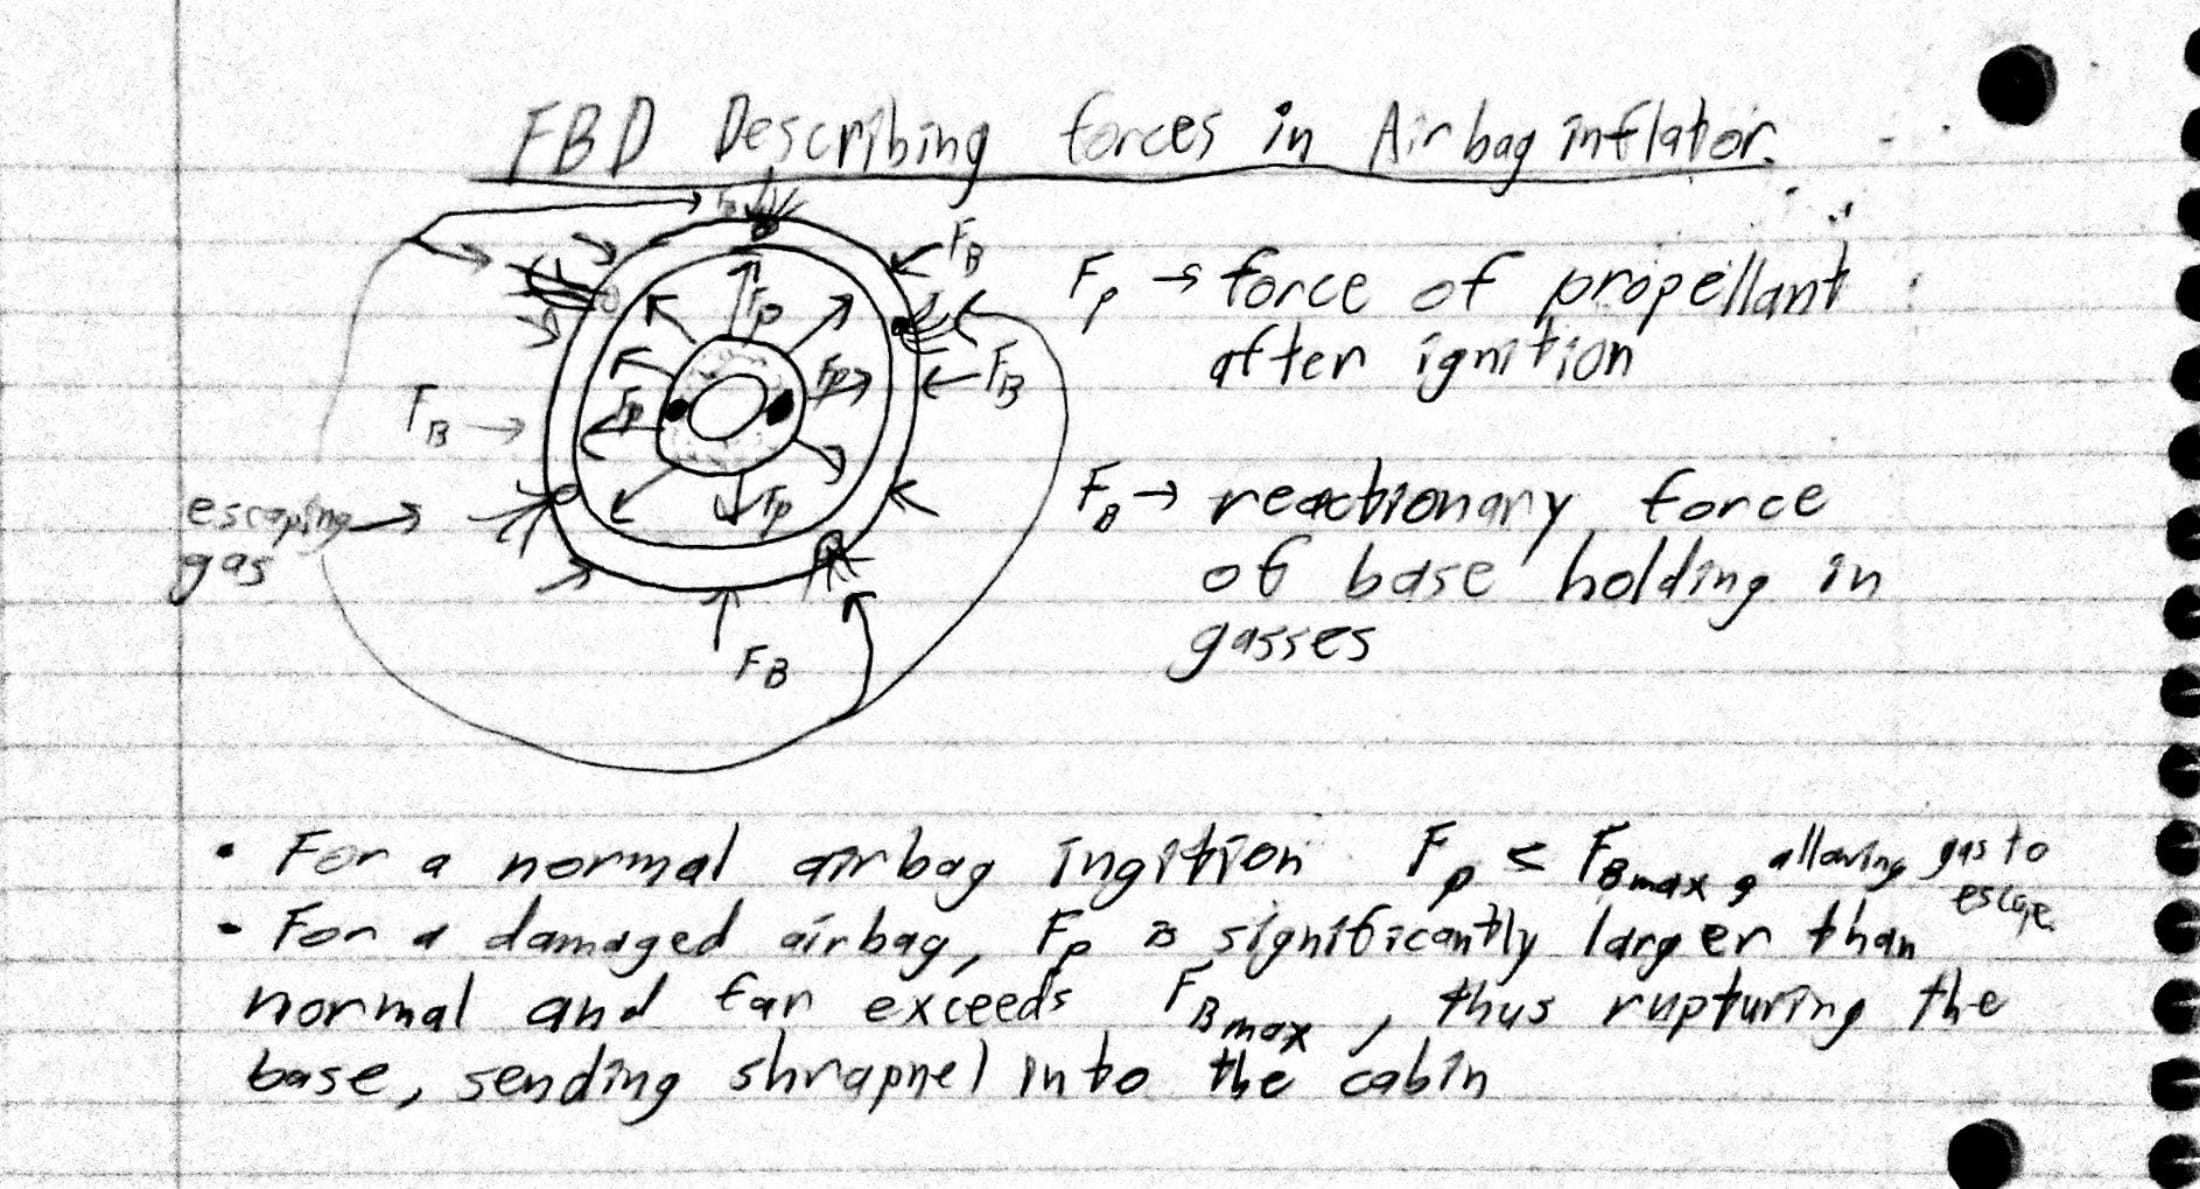 FBD Describing forces in Airbag inflator.
F_B
F_p → force of propellant
after ignition
F_p
F_p
F_B
F_p
F_B →
escaping →
gas
F_p
F_B
F_B → reactionary force
of base holding in
gasses
• For a normal airbag ingition F_p ≤ F_Bmax, allowing gas to
escape
• For a damaged airbag, F_p is significantly larger than
normal and far exceeds F_Bmax, thus rupturing the
base, sending shrapnel into the cabin